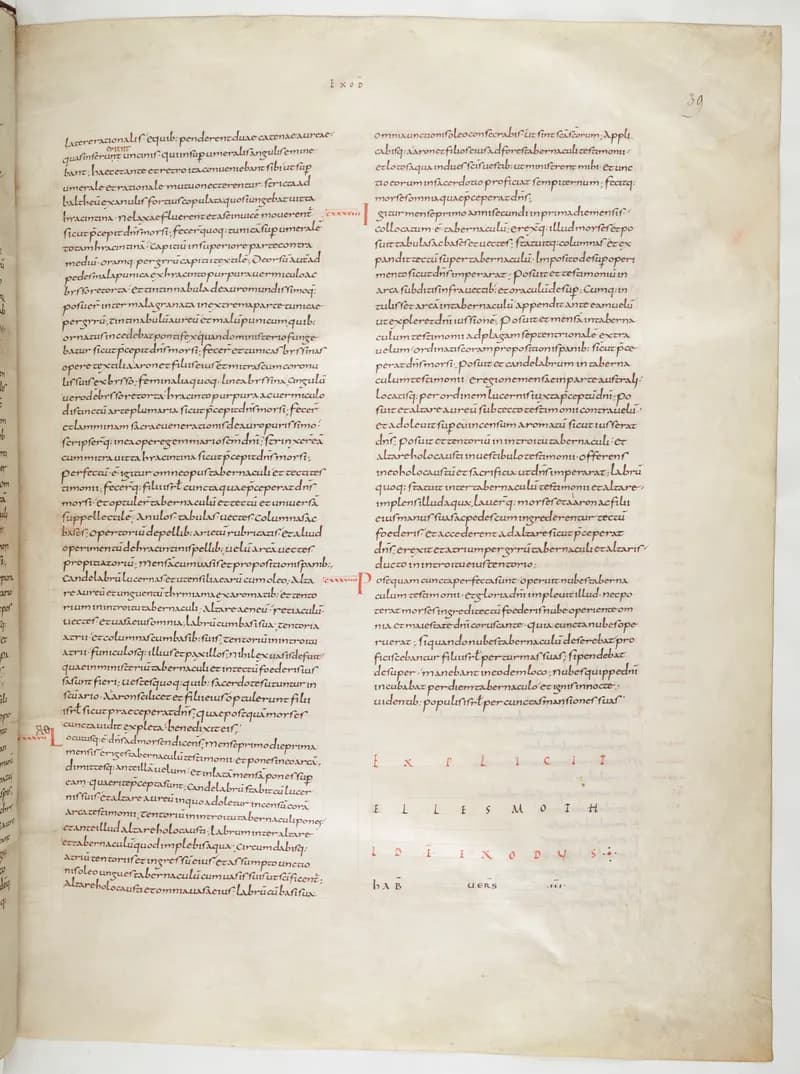 EXOD
39
lateere rationalis equib; penderent duae catenae aureae
quas inserunt uncinis. qui in sup umeralis angulis emine
bant; haec et ante et retro ita conueniebant sibi ut sup
umerale et rationale mutuo necterentur. stricta ad
balteu et anulis fortius copulata quos iungebat uitta
hiacintina. ne laxa fluerent et a se inuice mouerent
sicut pcepit dns mosi; fecer quoq; tunica sup umerale
tota hiacintina. capitiu in superiore parte contra
mediu. oramq; per gyru capitii textile; Deorsu aute ad
pedes mala punica ex hiacinto purpura uermiculo ac
bysso retorta. et tintinnabula de auro mundissimo q;
posuer inter malagranata in extrema parte tunicae
per gyru; tintinabulu aureu et malu punicum quib;
ornatus incedebat pontifex quando ministerio funge
batur sicut pcepit dns mosi; fecer et tunicas byssinas
opere textili aaron et filiis eius et mitras cum coronu
lis suis ex bysso; feminalia quoq; linea byssina. cingulu
uero de bysso retorta hiacinto purpura ac uermiculo
distinctu arte plumaria sicut pcepit dns mosi; fecer
et lamminam sacrae uenerationis de auro purissimo.
scripserq; in ea opere gemmario scm dni; strinxer ea
cum mitra uitta hiacintina sicut pcepit dns mosi;
perfectu e igitur omne opus tabernaculi et tecti tes
timonii; fecerq; filii isrl cuncta quae pceperat dns
mosi. et optuler tabernaculu et tectu et uniuersa
suppellectile. anulos tabulas uectes columnas ac
bases. opertoriu de pellib; arietu rubricatis. et aliud
operimentu de hiacintinis pellib; uelu arca uectes
propitiatoriu; mensa cum uasis et propositionis panib;
candelabru lucernas et utensilia earu cum oleo; Alta
re aureu et unguentu thimiama ex aromatib; et tento
rium in introitu tabernaculi. Altare aeneu. retiaculu.
uectes et uasa eius omnia; labru cum basi sua. tentoria
atrii. et columnas cum basib; suis. tentoriu in introitu
atrii. funiculosq; illius et paxillos. nihil ex uasis defuit
quae in ministeriu tabernaculi et in tectu foederis ius
sa sunt fieri; uestes quoq; quib; sacerdotes utuntur in
sctuario. Aaron scilicet et filii eius optulerunt filii
isrl sicut praeceperat dns; quae postqua moyses
cuncta uidit expleta benedixit eis;
Locutusq; e dns ad moysen dicens; mense primo die prima
mensis eriges tabernaculu testimonii et pones in eo arca.
dimittesq; ante illa uelum. et inlata mensa pones sup
eam. quae rite pcepta sunt; candelabru stabit cu lucer
nis suis et altare aureu in quo adoletur incensu cora
arca testimonii; tentoriu in introitu tabernaculi pones
et ante illud altare holocausti; labrum inter altare
et tabernaculu quod implebis aqua. circumdabisq;
atriu tentoriis et ingressu eius et assumpto unctio
nis oleo ungues tabernaculu cum uasis suis ut scificent;
Altare holocausti et omnia uasa eius labru cu basi sua
omnia unctionis oleo consecrabis ut sint sca scorum; Appli
cabisq; aaron et filios eius ad fores tabernaculi testimonii
et lotos aqua indues scis uestib; ut ministrent mihi et unc
tio eorum in sacerdotio proficiat sempiternum; fecitq;
moyses omnia quae pceperat dns;
Igitur mense primo anni secundi in prima die mensis
collocatum e tabernaculu; erexitq; illud moyses et po
suit tabulas ac bases et uectes; statuitq; columnas et ex
pandit tectu super tabernaculu. Imposito desup operi
mento sicut dns imperarat; Posuit et testimoniu in
arca subditis infra uectib; et oraculu desup; Cumq; in
tulisset arca in tabernaculu appendit ante eam uelu
ut expleret dni iussione; Posuit et mensa in taberna
culum testimonii ad plagam septentrionale extra
uelum. ordinatis coram propositionis panib; sicut pce
perat dns mosi; Posuit et candelabrum in taberna
culum testimonii. e regione mensae in parte australi;
Locatis q; per ordinem lucernis iuxta pceptu dni; po
suit et altare aureu sub tecto testimonii contra uelu.
et adoleuit sup eu incensum aromatu sicut iusserat
dns; posuit et tentoriu in introitu tabernaculi. et
altare holocausti in uestibulo testimonii. offerens
in eo holocaustu et sacrificia ut dns imperarat; labru
quoq; statuit inter tabernaculu testimonii et altare.
implens illud aqua; lauerq; moyses et aaron ac filii
eius manus suas ac pedes cum ingrederentur tectu
foederis. et accederent ad altare sicut pceperat
dns. erexit et atrium per gyru tabernaculi et altaris.
ducto in introitu eius tentorio;
Postquam cuncta perfecta sunt. operuit nubes taberna
culum testimonii. et gloria dni impleuit illud. nec po
terat moyses ingredi tectu foederis nube operiente om
nia. et maiestate dni coruscante. quia cuncta nubes ope
ruerat; si quando nubes tabernaculu deserebat pro
ficiscebantur filii isrl per turmas suas; si pendebat
desuper. manebant in eodem loco; nubes quippe dni
incubabat per diem tabernaculo et ignis in nocte.
uidentib; populis isrl per cunctas mansiones suas.
EXPLICIT
ELLESMOTH
ID E EXODUS
HAB UERS .III.